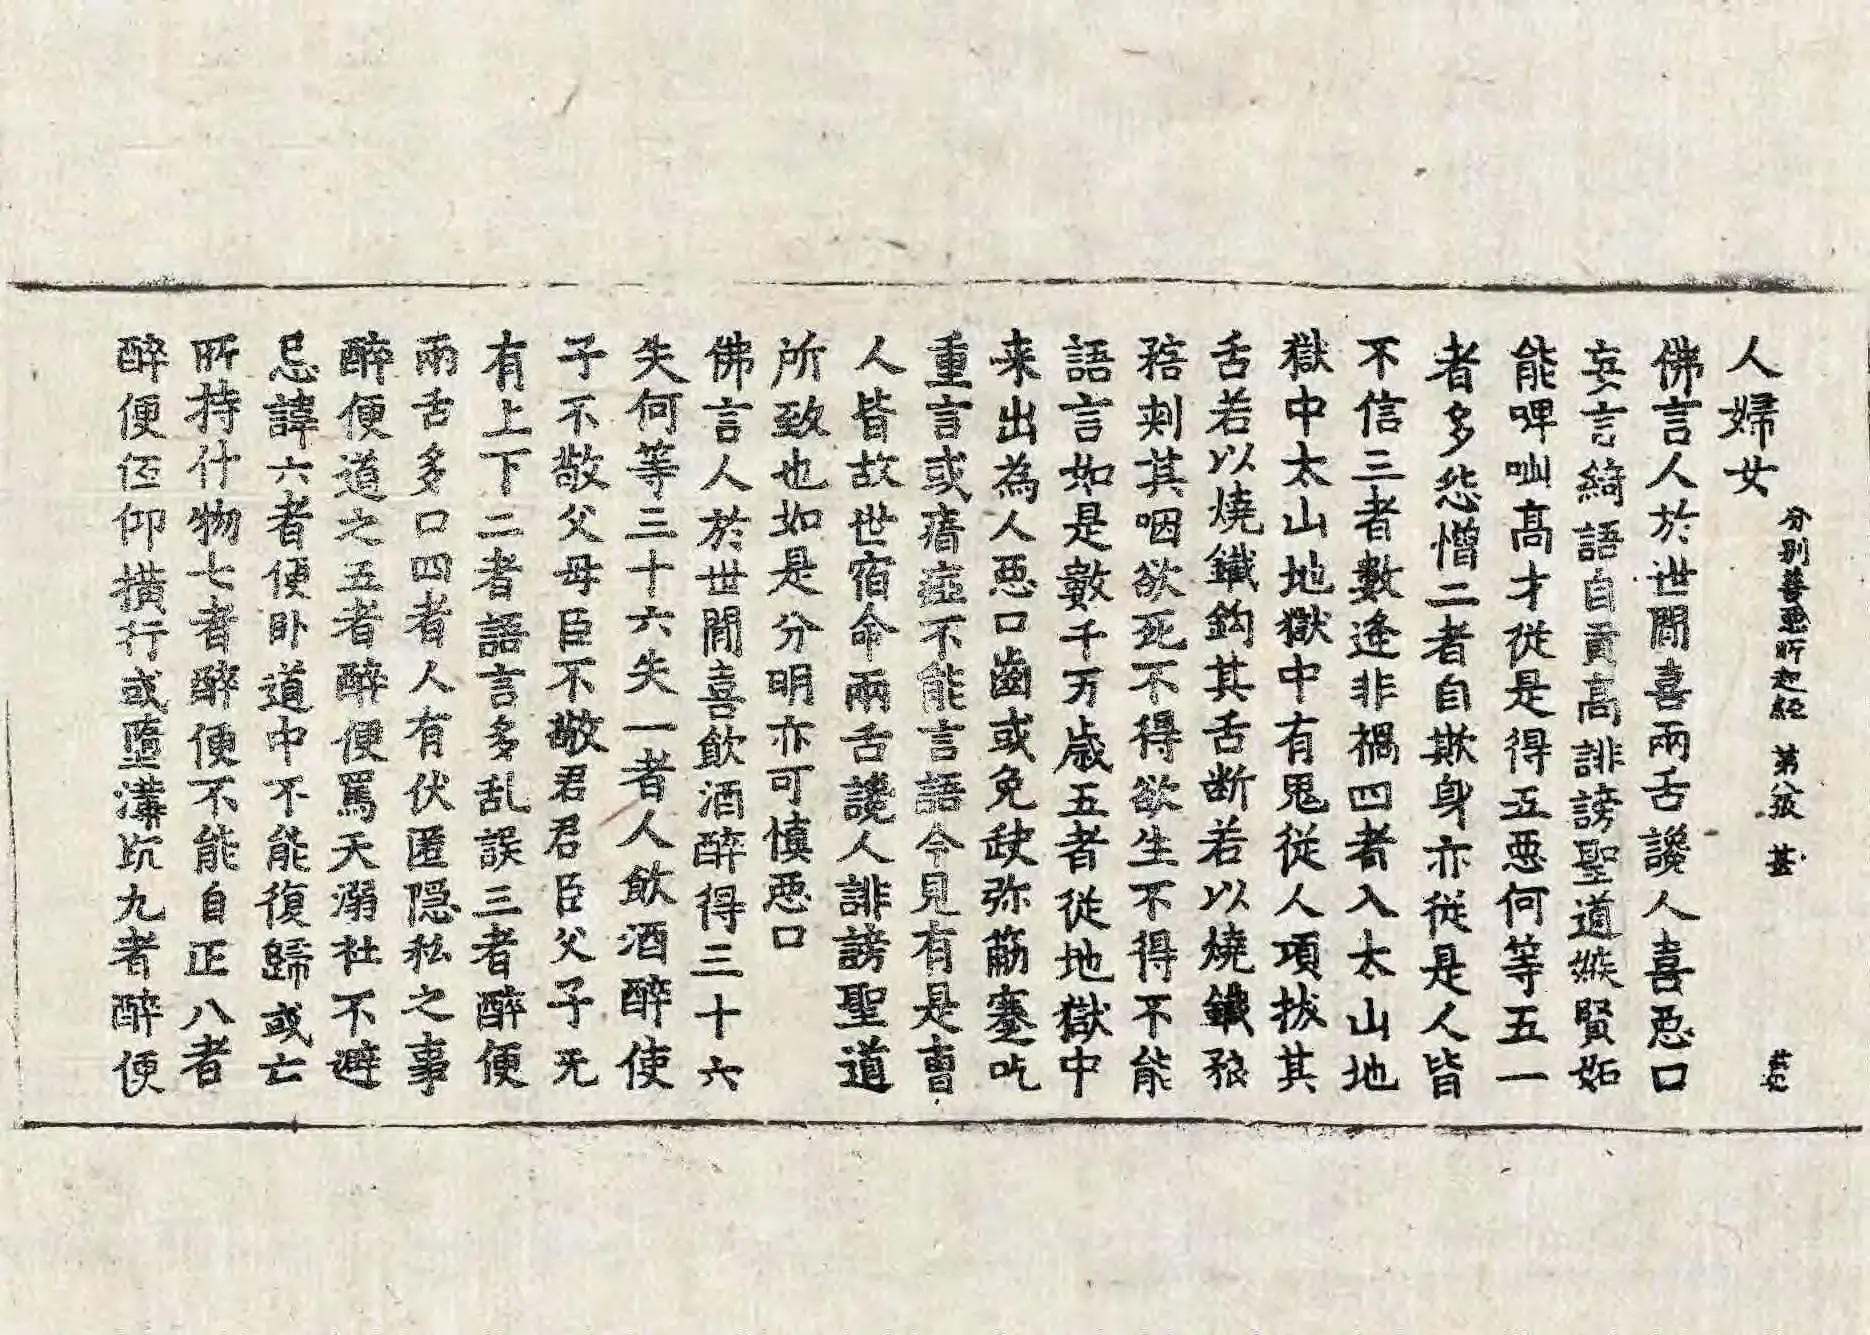 人婦女
分別善惡所起經 第八張 甚
佛言人於世間喜兩舌讒人喜惡口
妄言綺語自貢高誹謗聖道嫉賢妬
能啤呲高才從是得五惡何等五一
者多怨憎二者自欺身亦從是人皆
不信三者數逢非禍四者入太山地
獄中太山地獄中有鬼從人項拔其
舌若以燒鐵鈎其舌断若以燒鐵狼
其咽欲死不得欲生不得不能
語言如是數千万歲五者從地獄中
来出為人惡口齒或免缺弥筋蹇吃
重言或瘖瘂不能言語今見有是曹
人皆故世宿命兩舌讒人誹謗聖道
所致也如是分明亦可慎惡口
佛言人於世間喜飲酒醉得三十六
失何等三十六失一者人飲酒醉使
子不敬父母臣不敬君君臣父子无
有上下二者語言多乱誤三者醉便
兩舌多口四者人有伏匿隱私之事
醉便道之五者醉便罵天溺社不避
忌諱六者便卧道中不能復歸或亡
所持什物七者醉便不能自正八者
醉便仰橫行或墮溝坑九者醉便